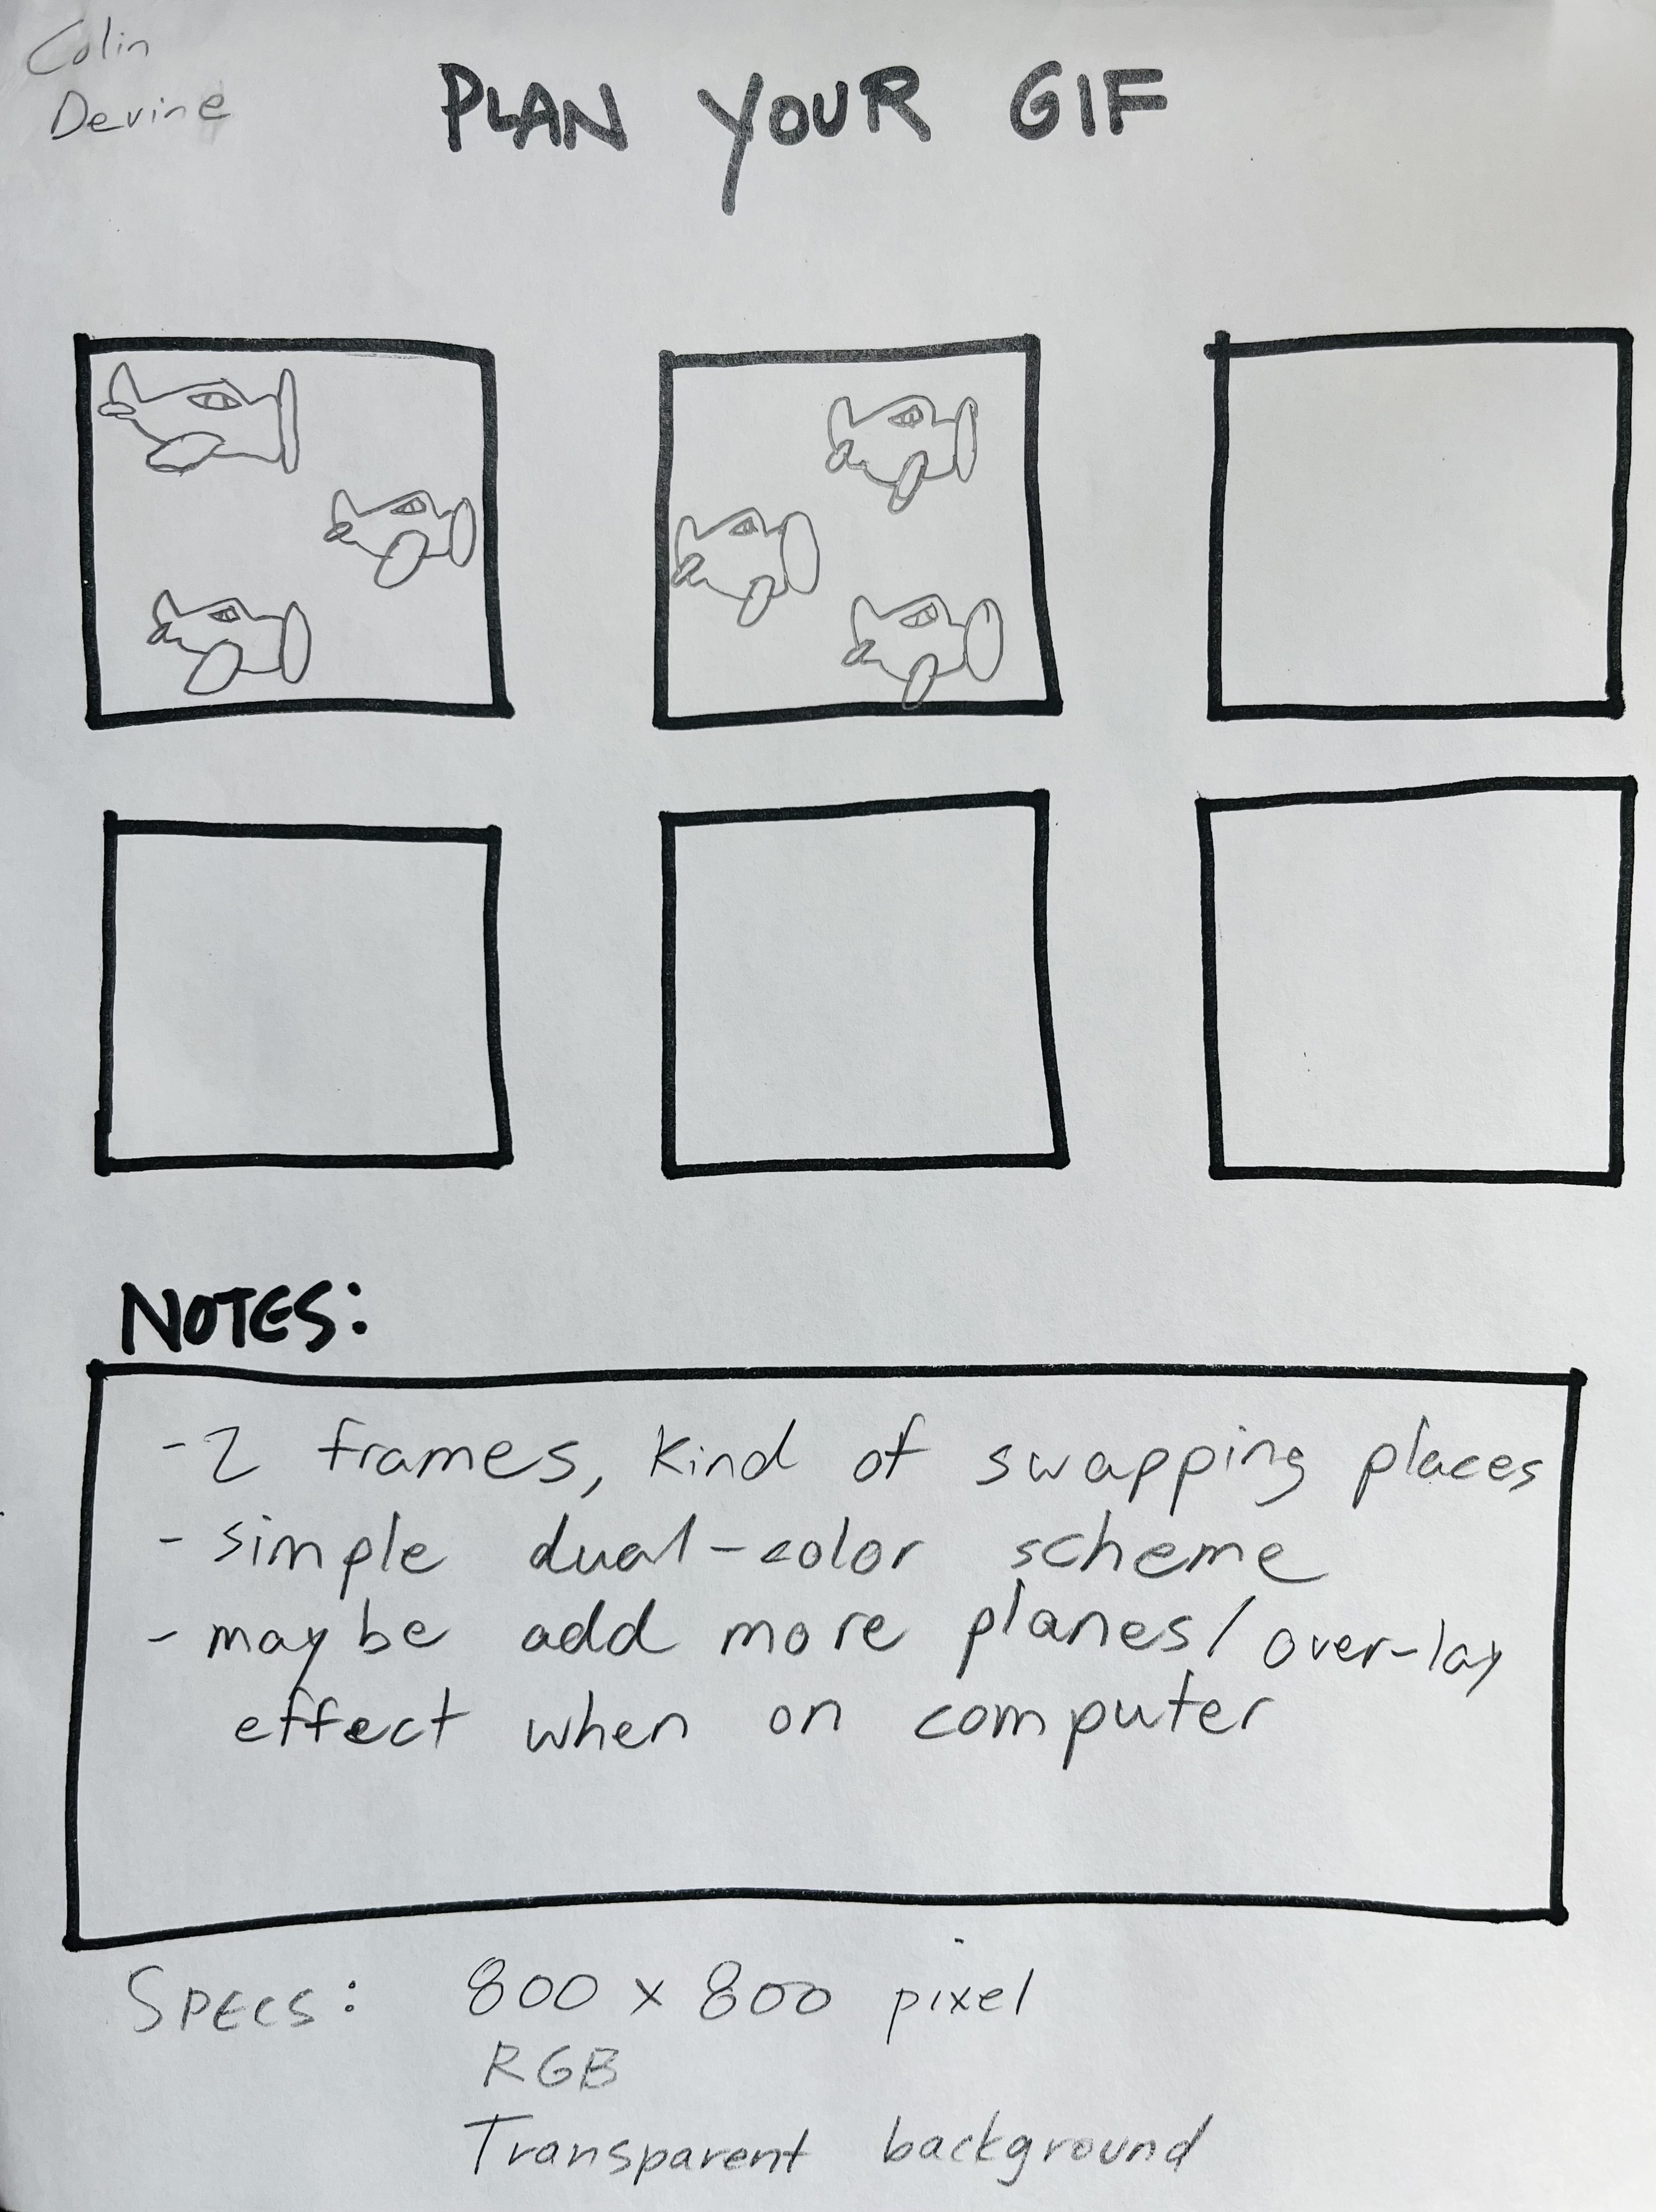 Colin
Devine
PLAN YOUR GIF
NOTES:
- 2 frames, kind of swapping places
- simple dual-color scheme
- maybe add more planes/over-lay
effect when on computer
SPECS: 800 x 800 pixel
RGB
Transparent background